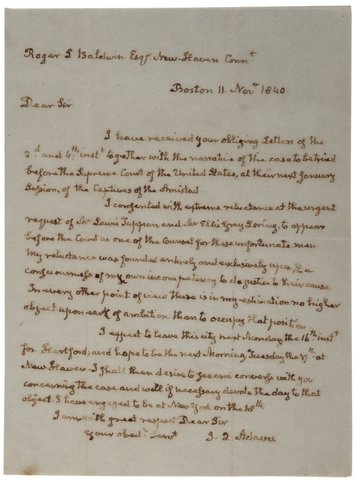 Roger S. Baldwin Esqr. New-Haven Connt.
Boston 11. Novr. 1840
Dear Sir
I have received your obliging Letters of the
2d. and 4th. inst. together with the narrative of the case to be tried
before the Supreme Court of the United States, at their next January
Session, of the Captives of the Amistad.
I consented with extreme reluctance at the urgent
request of Mr. Lewis Tappan, and Mr. Ellis Gray Loring, to appear
before the Court as one of the Counsel for these unfortunate men.
My reluctance was founded entirely and exclusively upon the
consciousness of my own incompetency to do justice to their cause.
In every other point of view there is in my estimation no higher
object upon earth of ambition than to occupy that position.
I expect to leave this city next Monday the 16th. inst.
for Hartford, and hope to be the next Morning, Tuesday the 17th. at
New Haven. I shall then desire to see and converse with you
concerning the case and will if necessary devote the day to that
object. I have engaged to be at New York on the
I am with great respect Dear Sir
your obedt. Servt. J. Q. Adams